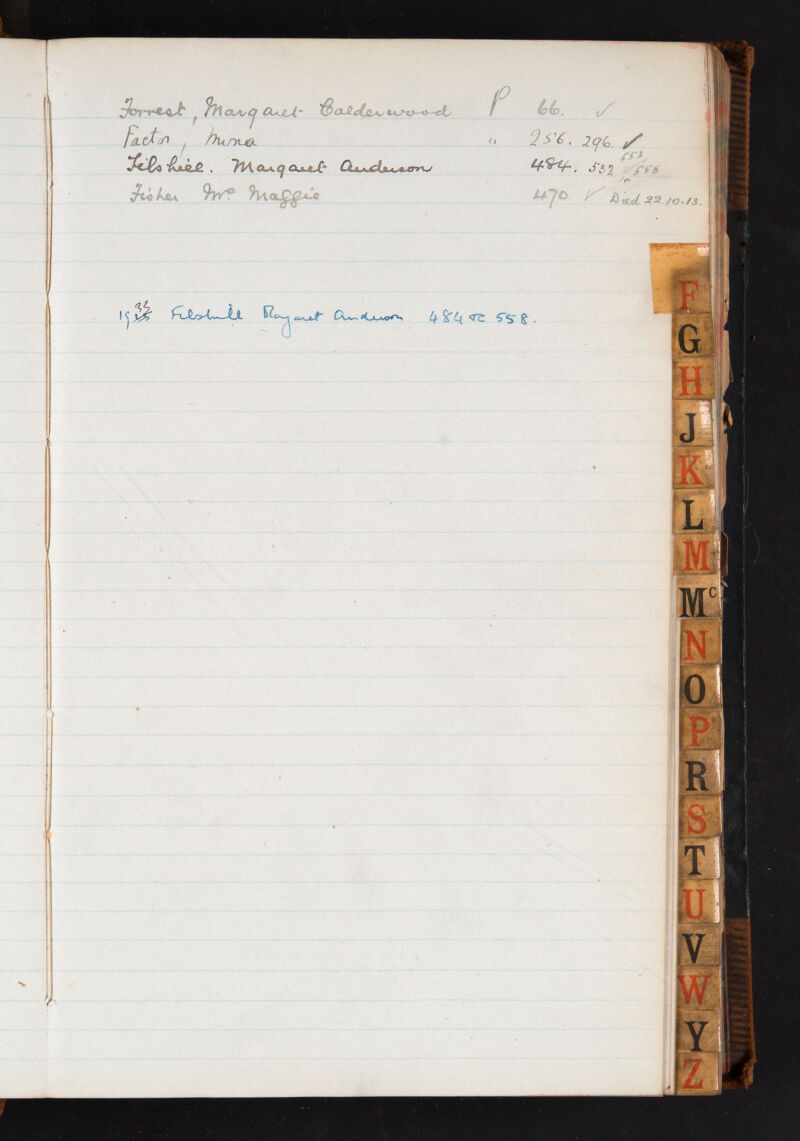 Forrest, Margaret Calderwood P 66. ✓
Factor, Mina " 256. 296. ✓
553
Filshill. Margaret Anderson 484. 532 558
Fisher Mrs Maggie 470 ✓ Died 22.10.13.
19 Filshill Margaret Anderson 484 & 558.
F
G
H
J
K
L
M
Mc
N
O
P
R
S
T
U
V
W
Y
Z